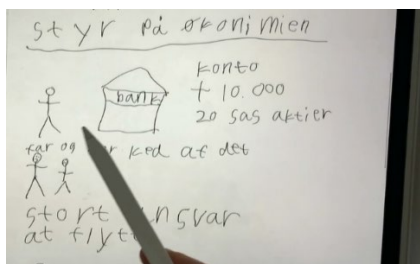 styr på økonimien
bank
konto
+ 10.000
20 sas aktier
far og ked af det
stort
at